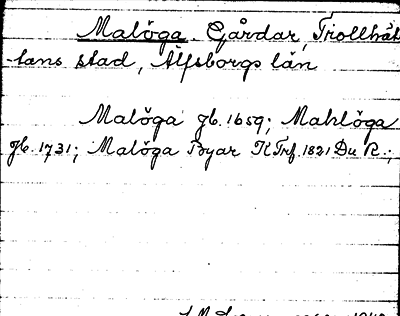 Malöga. Gårdar, Trollhät-
tans stad, Älfsborgs län
Malöga jb. 1659; Mahlöga
jb. 1731; Malöga Byar KTrf. 1821 Du R.;